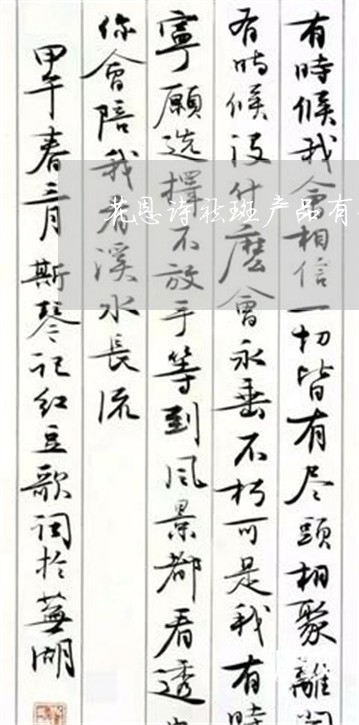 有時候我會相信一切皆有尽頭相聚離
有時候没什麼會永垂不朽可是我有時
寧願选擇不放手等到风景都看透
你會陪我看溪水長流
甲午春三月斯琴记红豆歌词於蕪湖
花恩诗祛斑产品有